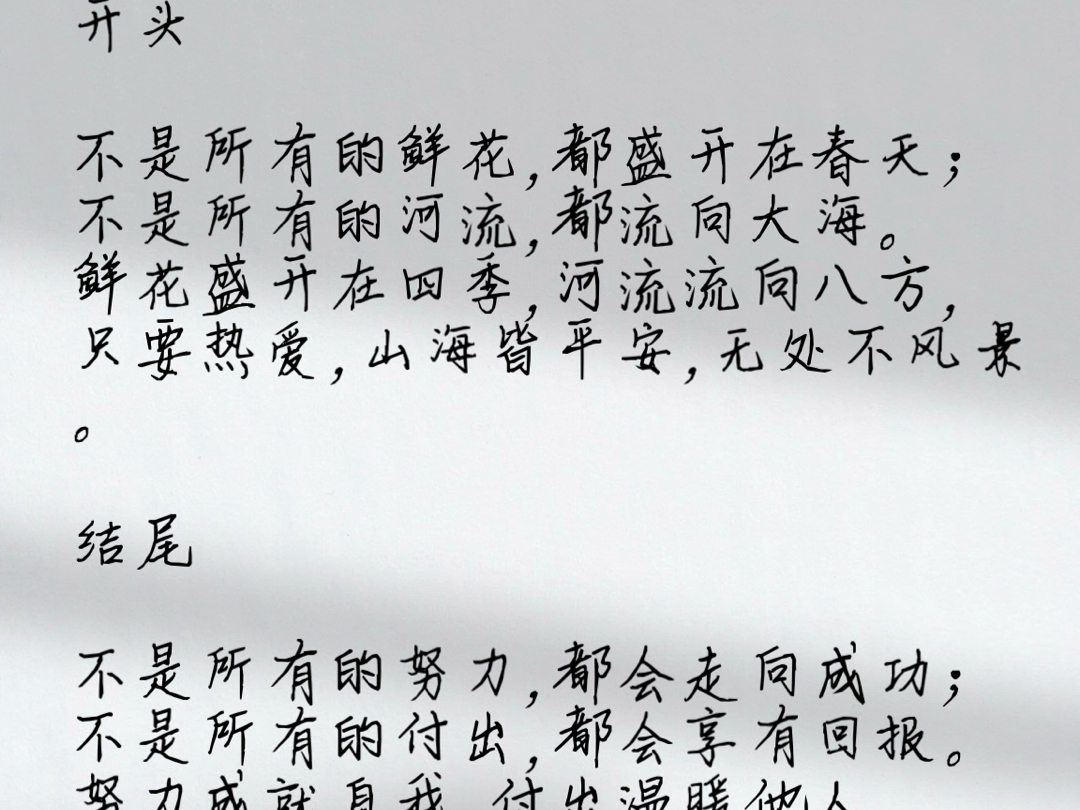 开头
不是所有的鲜花,都盛开在春天;
不是所有的河流,都流向大海。
鲜花盛开在四季,河流流向八方,
只要热爱,山海皆平安,无处不风景
。
结尾
不是所有的努力,都会走向成功;
不是所有的付出,都会享有回报。
努力成就自我,付出温暖他人